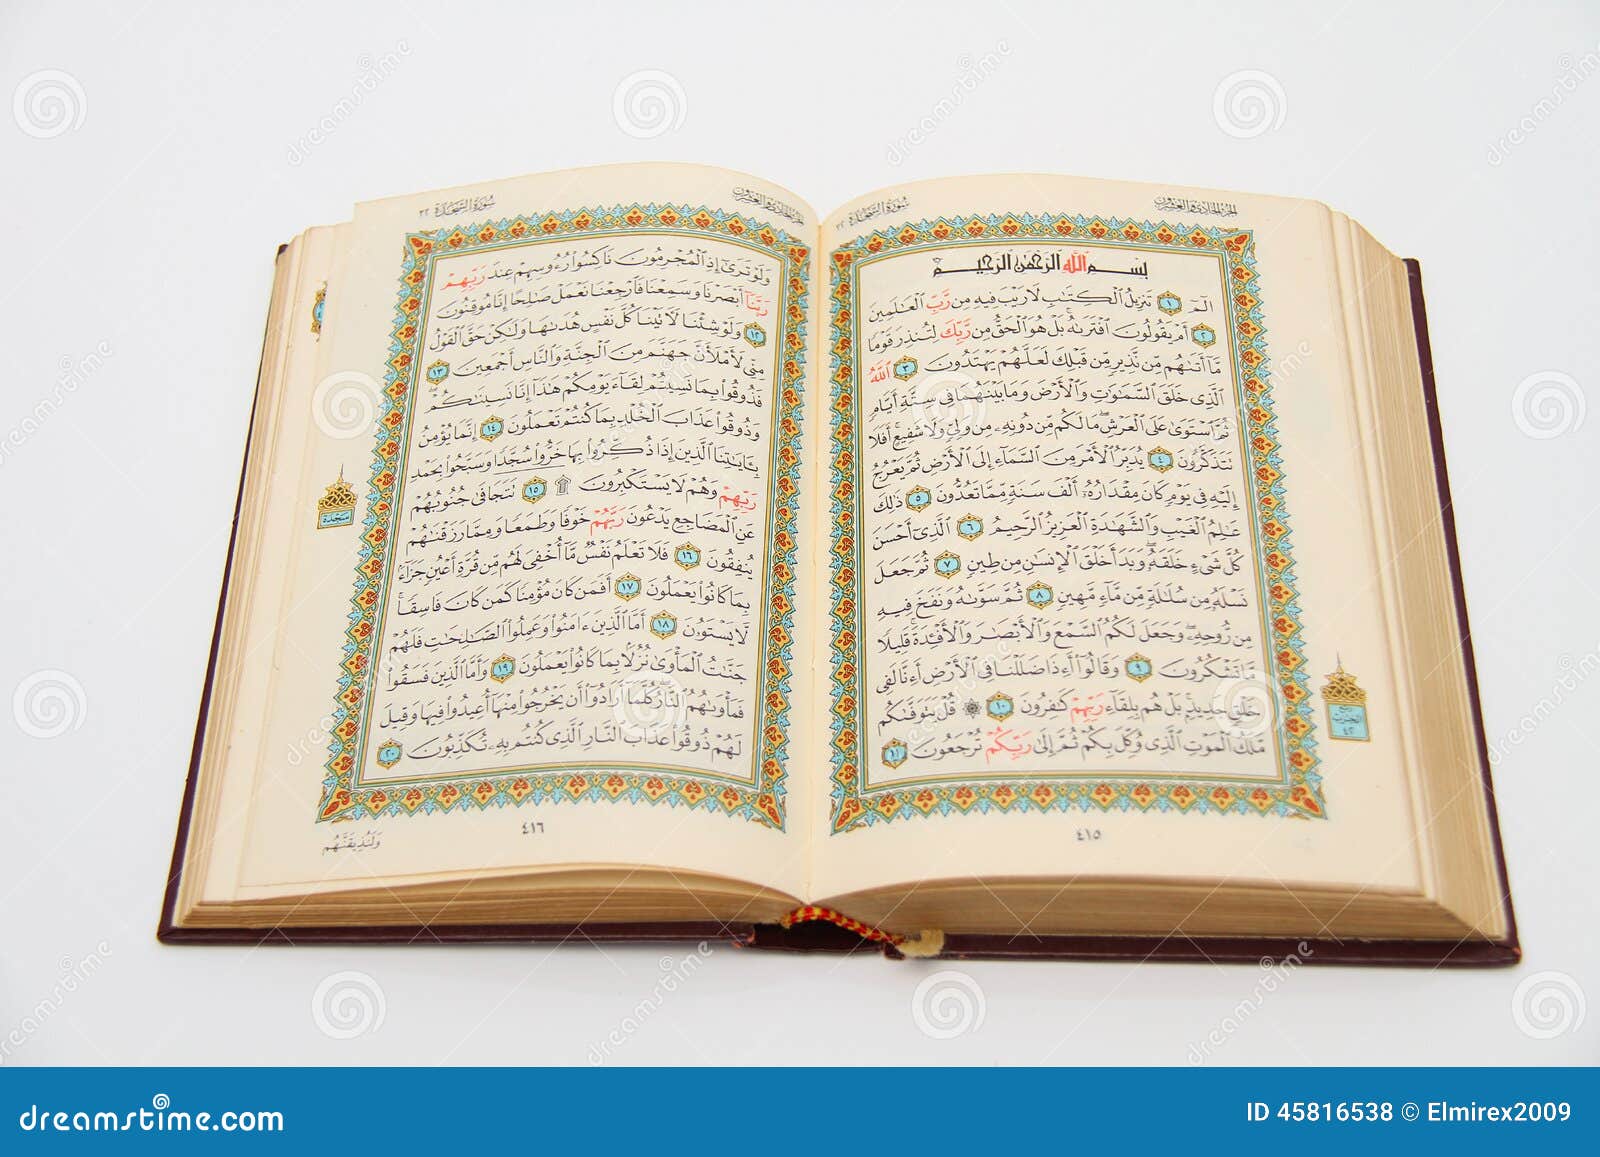 الجزء الحادي والعشرون
سورة السجدة ٣٢
بِسْمِ ٱللَّهِ ٱلرَّحْمَٰنِ ٱلرَّحِيمِ
الٓمٓ ١ تَنزِيلُ ٱلْكِتَٰبِ لَا رَيْبَ فِيهِ مِن رَّبِّ ٱلْعَٰلَمِينَ
٢ أَمْ يَقُولُونَ ٱفْتَرَىٰهُ بَلْ هُوَ ٱلْحَقُّ مِن رَّبِّكَ لِتُنذِرَ قَوْمًا
مَّآ أَتَىٰهُم مِّن نَّذِيرٍ مِّن قَبْلِكَ لَعَلَّهُمْ يَهْتَدُونَ ٣ ٱللَّهُ
ٱلَّذِى خَلَقَ ٱلسَّمَٰوَٰتِ وَٱلْأَرْضَ وَمَا بَيْنَهُمَا فِى سِتَّةِ أَيَّامٍ
ثُمَّ ٱسْتَوَىٰ عَلَى ٱلْعَرْشِ مَا لَكُم مِّن دُونِهِۦ مِن وَلِىٍّ وَلَا شَفِيعٍ أَفَلَا
تَتَذَكَّرُونَ ٤ يُدَبِّرُ ٱلْأَمْرَ مِنَ ٱلسَّمَآءِ إِلَى ٱلْأَرْضِ ثُمَّ يَعْرُجُ
إِلَيْهِ فِى يَوْمٍ كَانَ مِقْدَارُهُۥٓ أَلْفَ سَنَةٍ مِّمَّا تَعُدُّونَ ٥ ذَٰلِكَ
عَٰلِمُ ٱلْغَيْبِ وَٱلشَّهَٰدَةِ ٱلْعَزِيزُ ٱلرَّحِيمُ ٦ ٱلَّذِىٓ أَحْسَنَ
كُلَّ شَىْءٍ خَلَقَهُۥ وَبَدَأَ خَلْقَ ٱلْإِنسَٰنِ مِن طِينٍ ٧ ثُمَّ جَعَلَ
نَسْلَهُۥ مِن سُلَٰلَةٍ مِّن مَّآءٍ مَّهِينٍ ٨ ثُمَّ سَوَّىٰهُ وَنَفَخَ فِيهِ
مِن رُّوحِهِۦ وَجَعَلَ لَكُمُ ٱلسَّمْعَ وَٱلْأَبْصَٰرَ وَٱلْأَفْـِٔدَةَ قَلِيلًا
مَّا تَشْكُرُونَ ٩ وَقَالُوٓا۟ أَءِذَا ضَلَلْنَا فِى ٱلْأَرْضِ أَءِنَّا لَفِى
خَلْقٍ جَدِيدٍۭ بَلْ هُم بِلِقَآءِ رَبِّهِمْ كَٰفِرُونَ ١٠ ۞ قُلْ يَتَوَفَّىٰكُم
مَّلَكُ ٱلْمَوْتِ ٱلَّذِى وُكِّلَ بِكُمْ ثُمَّ إِلَىٰ رَبِّكُمْ تُرْجَعُونَ ١١
الحزب
٤٢
٤١٥
الجزء الحادي والعشرون
سورة السجدة ٣٢
وَلَوْ تَرَىٰٓ إِذِ ٱلْمُجْرِمُونَ نَاكِسُوا۟ رُءُوسِهِمْ عِندَ رَبِّهِمْ
رَبَّنَآ أَبْصَرْنَا وَسَمِعْنَا فَٱرْجِعْنَا نَعْمَلْ صَٰلِحًا إِنَّا مُوقِنُونَ
١٢ وَلَوْ شِئْنَا لَءَاتَيْنَا كُلَّ نَفْسٍ هُدَىٰهَا وَلَٰكِنْ حَقَّ ٱلْقَوْلُ
مِنِّى لَأَمْلَأَنَّ جَهَنَّمَ مِنَ ٱلْجِنَّةِ وَٱلنَّاسِ أَجْمَعِينَ ١٣
فَذُوقُوا۟ بِمَا نَسِيتُمْ لِقَآءَ يَوْمِكُمْ هَٰذَآ إِنَّا نَسِينَٰكُمْ
وَذُوقُوا۟ عَذَابَ ٱلْخُلْدِ بِمَا كُنتُمْ تَعْمَلُونَ ١٤ إِنَّمَا يُؤْمِنُ
بِـَٔايَٰتِنَا ٱلَّذِينَ إِذَا ذُكِّرُوا۟ بِهَا خَرُّوا۟ سُجَّدًا وَسَبَّحُوا۟ بِحَمْدِ
رَبِّهِمْ وَهُمْ لَا يَسْتَكْبِرُونَ ۩ ١٥ تَتَجَافَىٰ جُنُوبُهُمْ
عَنِ ٱلْمَضَاجِعِ يَدْعُونَ رَبَّهُمْ خَوْفًا وَطَمَعًا وَمِمَّا رَزَقْنَٰهُمْ
يُنفِقُونَ ١٦ فَلَا تَعْلَمُ نَفْسٌ مَّآ أُخْفِىَ لَهُم مِّن قُرَّةِ أَعْيُنٍ جَزَآءًۢ
بِمَا كَانُوا۟ يَعْمَلُونَ ١٧ أَفَمَن كَانَ مُؤْمِنًا كَمَن كَانَ فَاسِقًا
لَّا يَسْتَوُۥنَ ١٨ أَمَّا ٱلَّذِينَ ءَامَنُوا۟ وَعَمِلُوا۟ ٱلصَّٰلِحَٰتِ فَلَهُمْ
جَنَّٰتُ ٱلْمَأْوَىٰ نُزُلًۢا بِمَا كَانُوا۟ يَعْمَلُونَ ١٩ وَأَمَّا ٱلَّذِينَ فَسَقُوا۟
فَمَأْوَىٰهُمُ ٱلنَّارُ كُلَّمَآ أَرَادُوٓا۟ أَن يَخْرُجُوا۟ مِنْهَآ أُعِيدُوا۟ فِيهَا وَقِيلَ
لَهُمْ ذُوقُوا۟ عَذَابَ ٱلنَّارِ ٱلَّذِى كُنتُم بِهِۦ تُكَذِّبُونَ ٢٠
سجدة
٤١٦
وَلَنُذِيقَنَّهُم
dreamstime.com
ID 45816538 © Elmirex2009